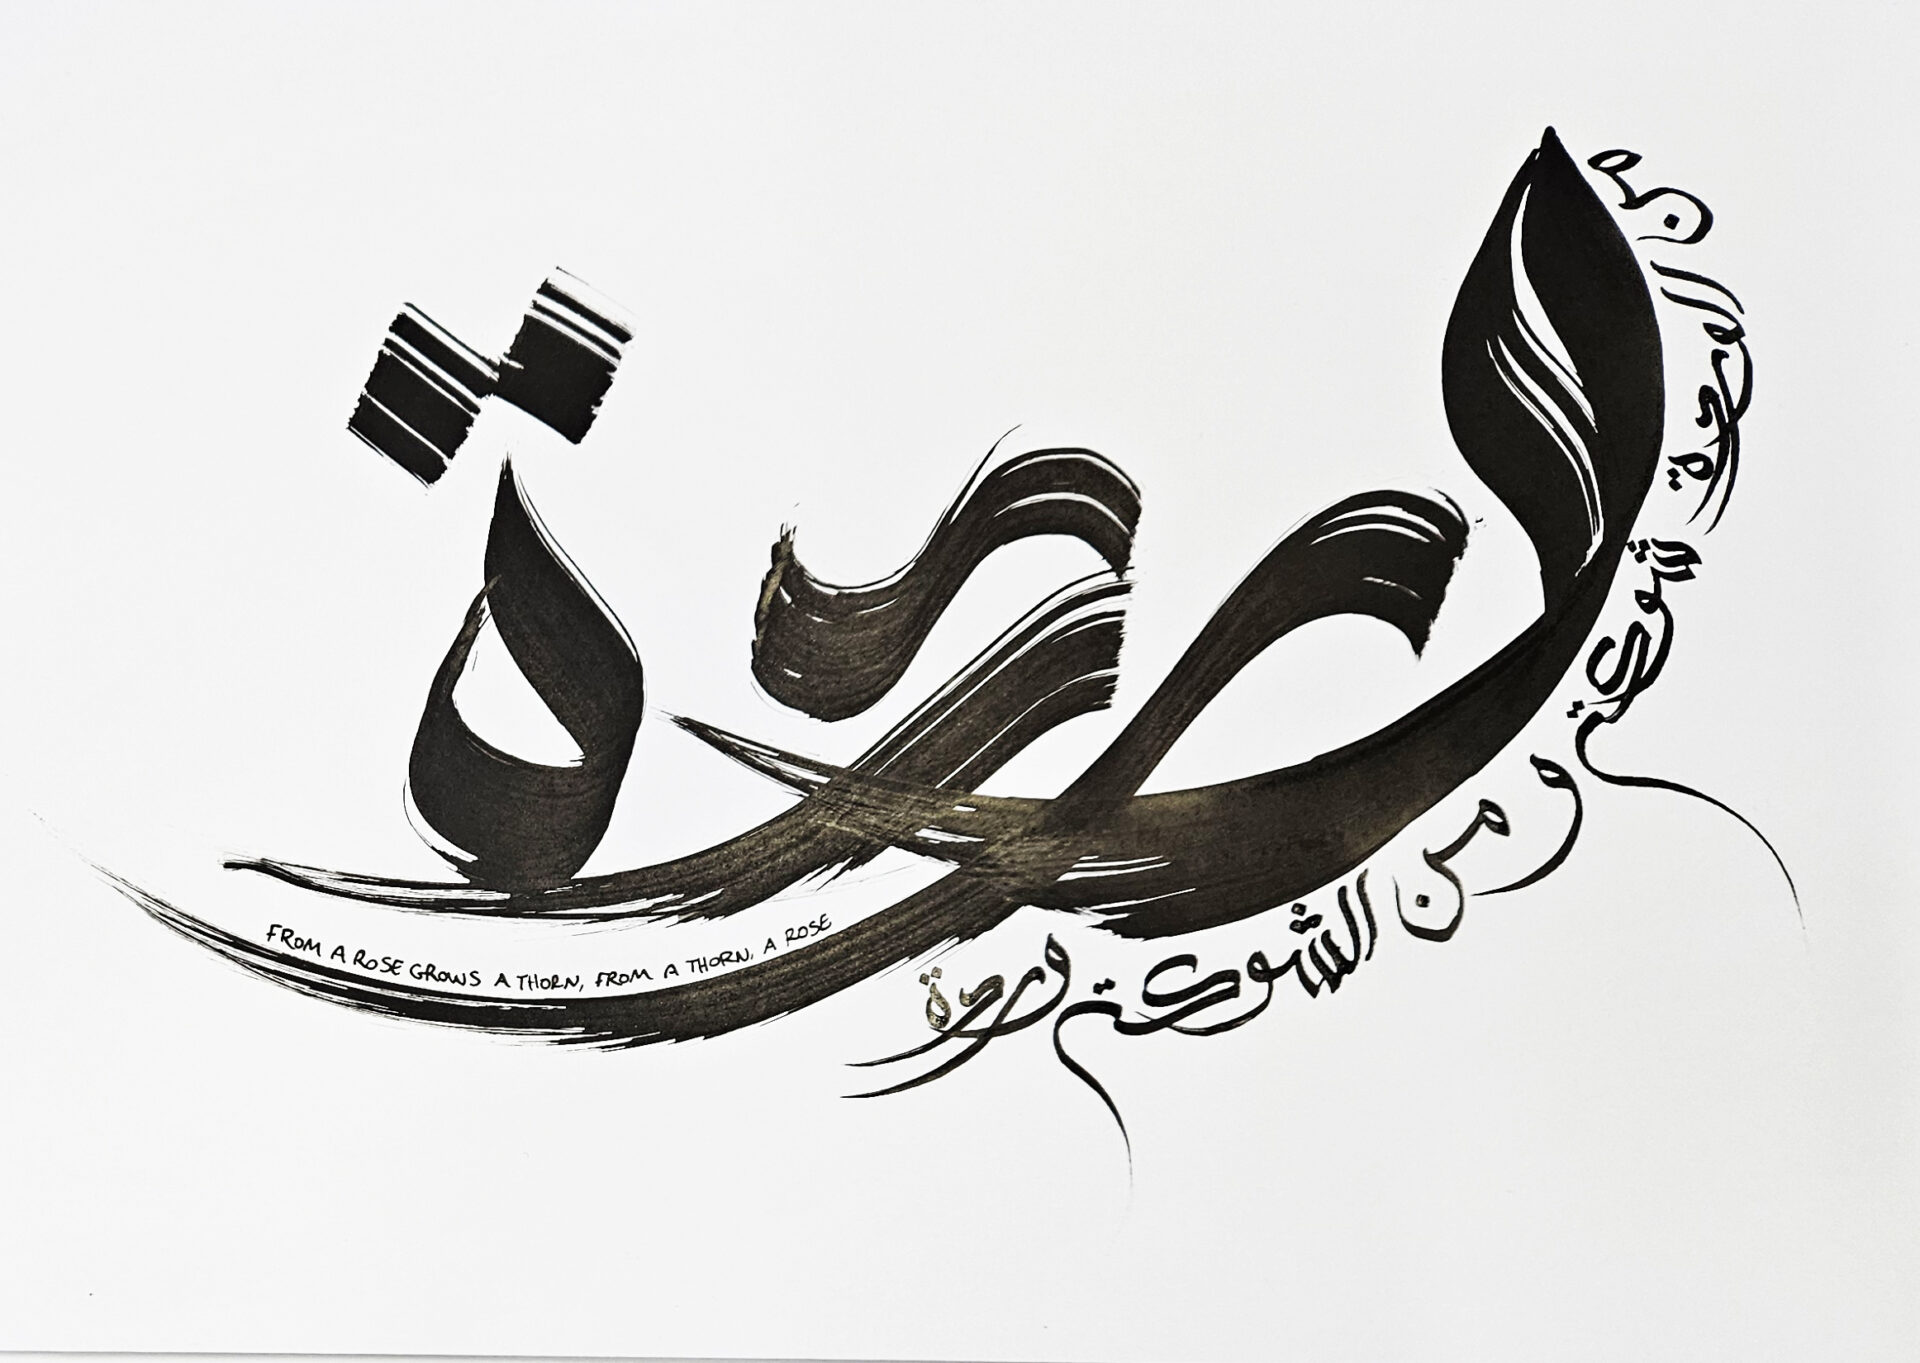 وردة
من الوردة شوكة و من الشوكة وردة
FROM A ROSE GROWS A THORN, FROM A THORN, A ROSE